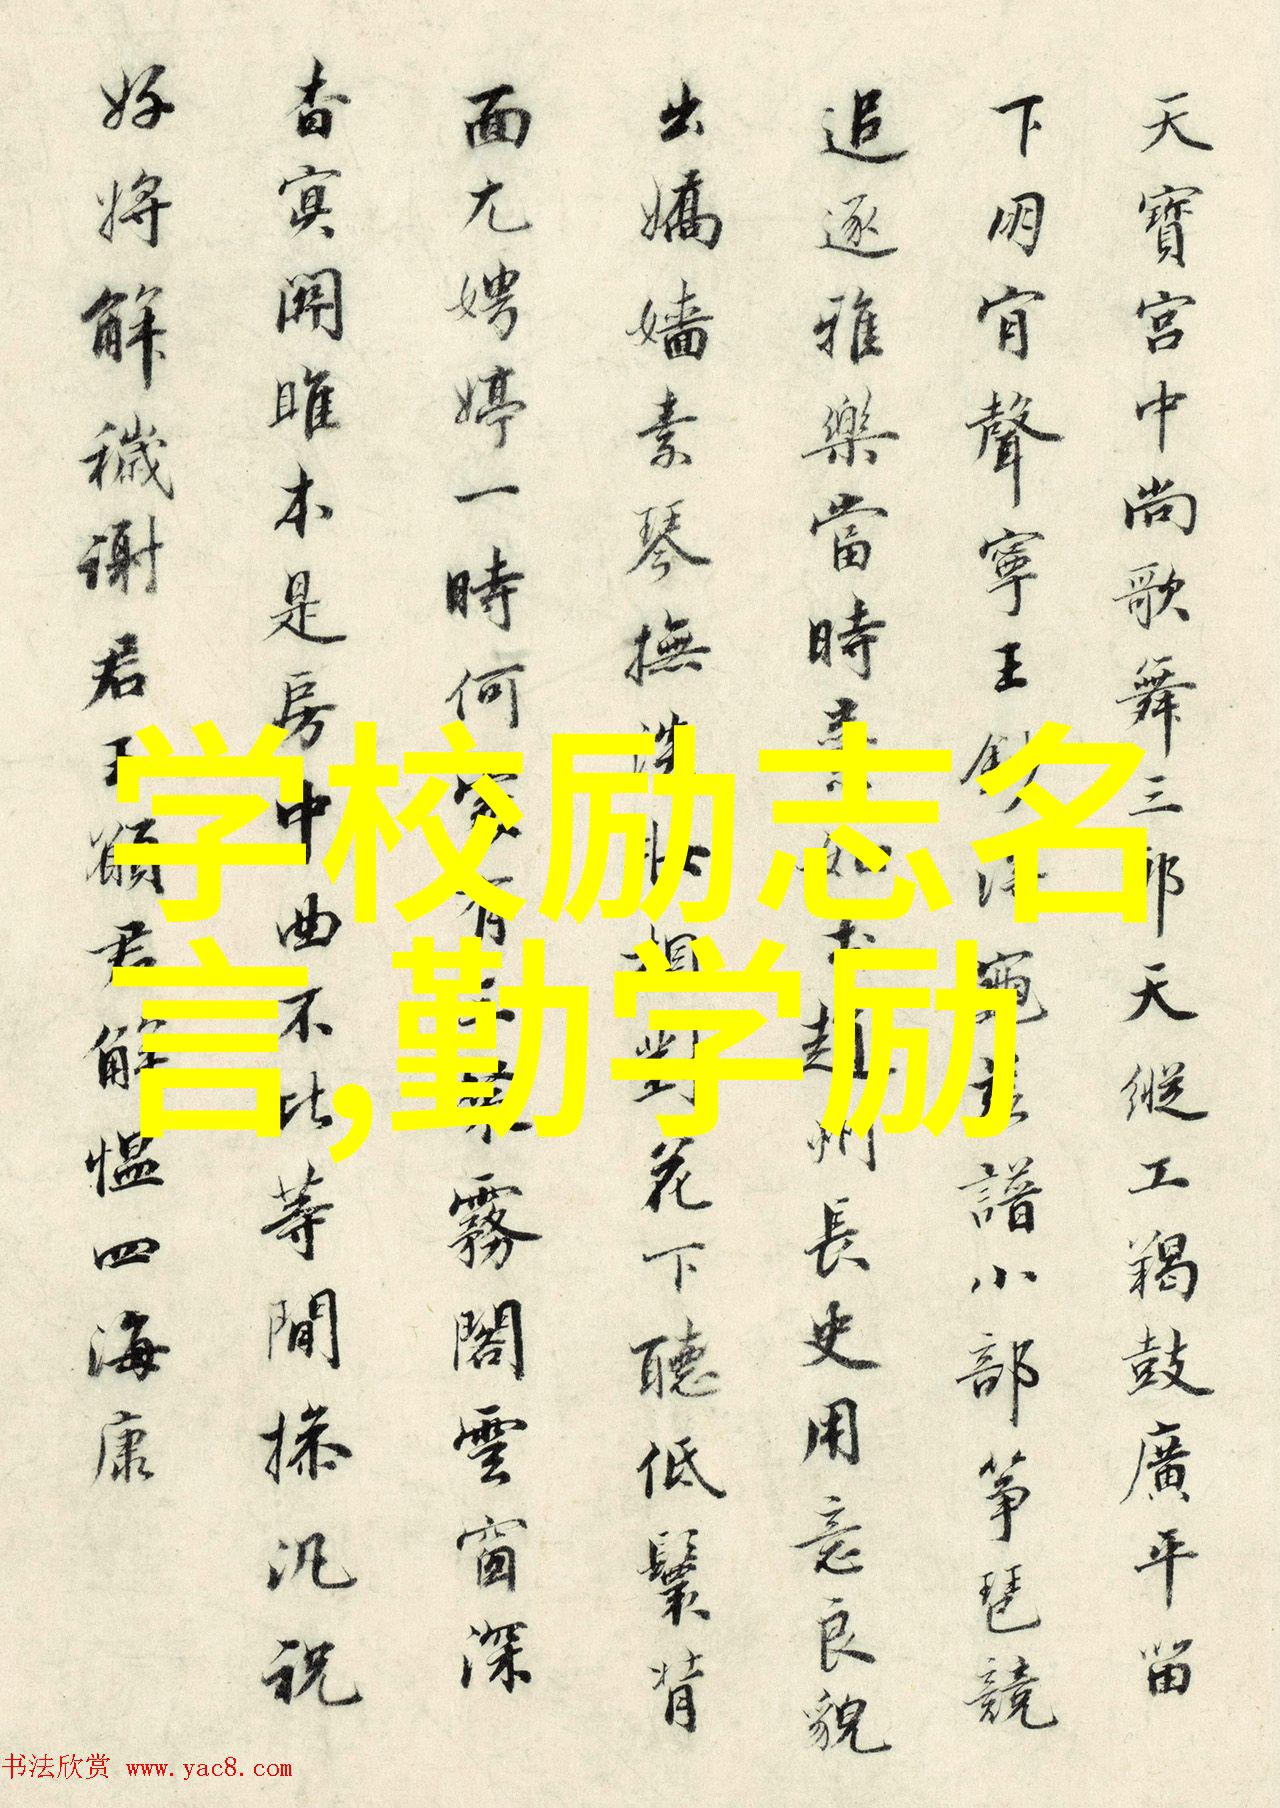 天寶宮中尚歌舞三郎天縱工羯鼓廣平留
下明肯聲寧王譜小部筝琶競
追逐雅樂當時趙州長史用意良貌
出嬌嬙素琴撫洗對花下聽低鬟背
面尤娉婷一時何有霧閣雲窗深
杳冥關雎本是房中曲不比等閒操汎祝
好將解穢謝君王願君解愠四海康
学校励志名
言,勤学励
书法欣赏 www.yac8.com